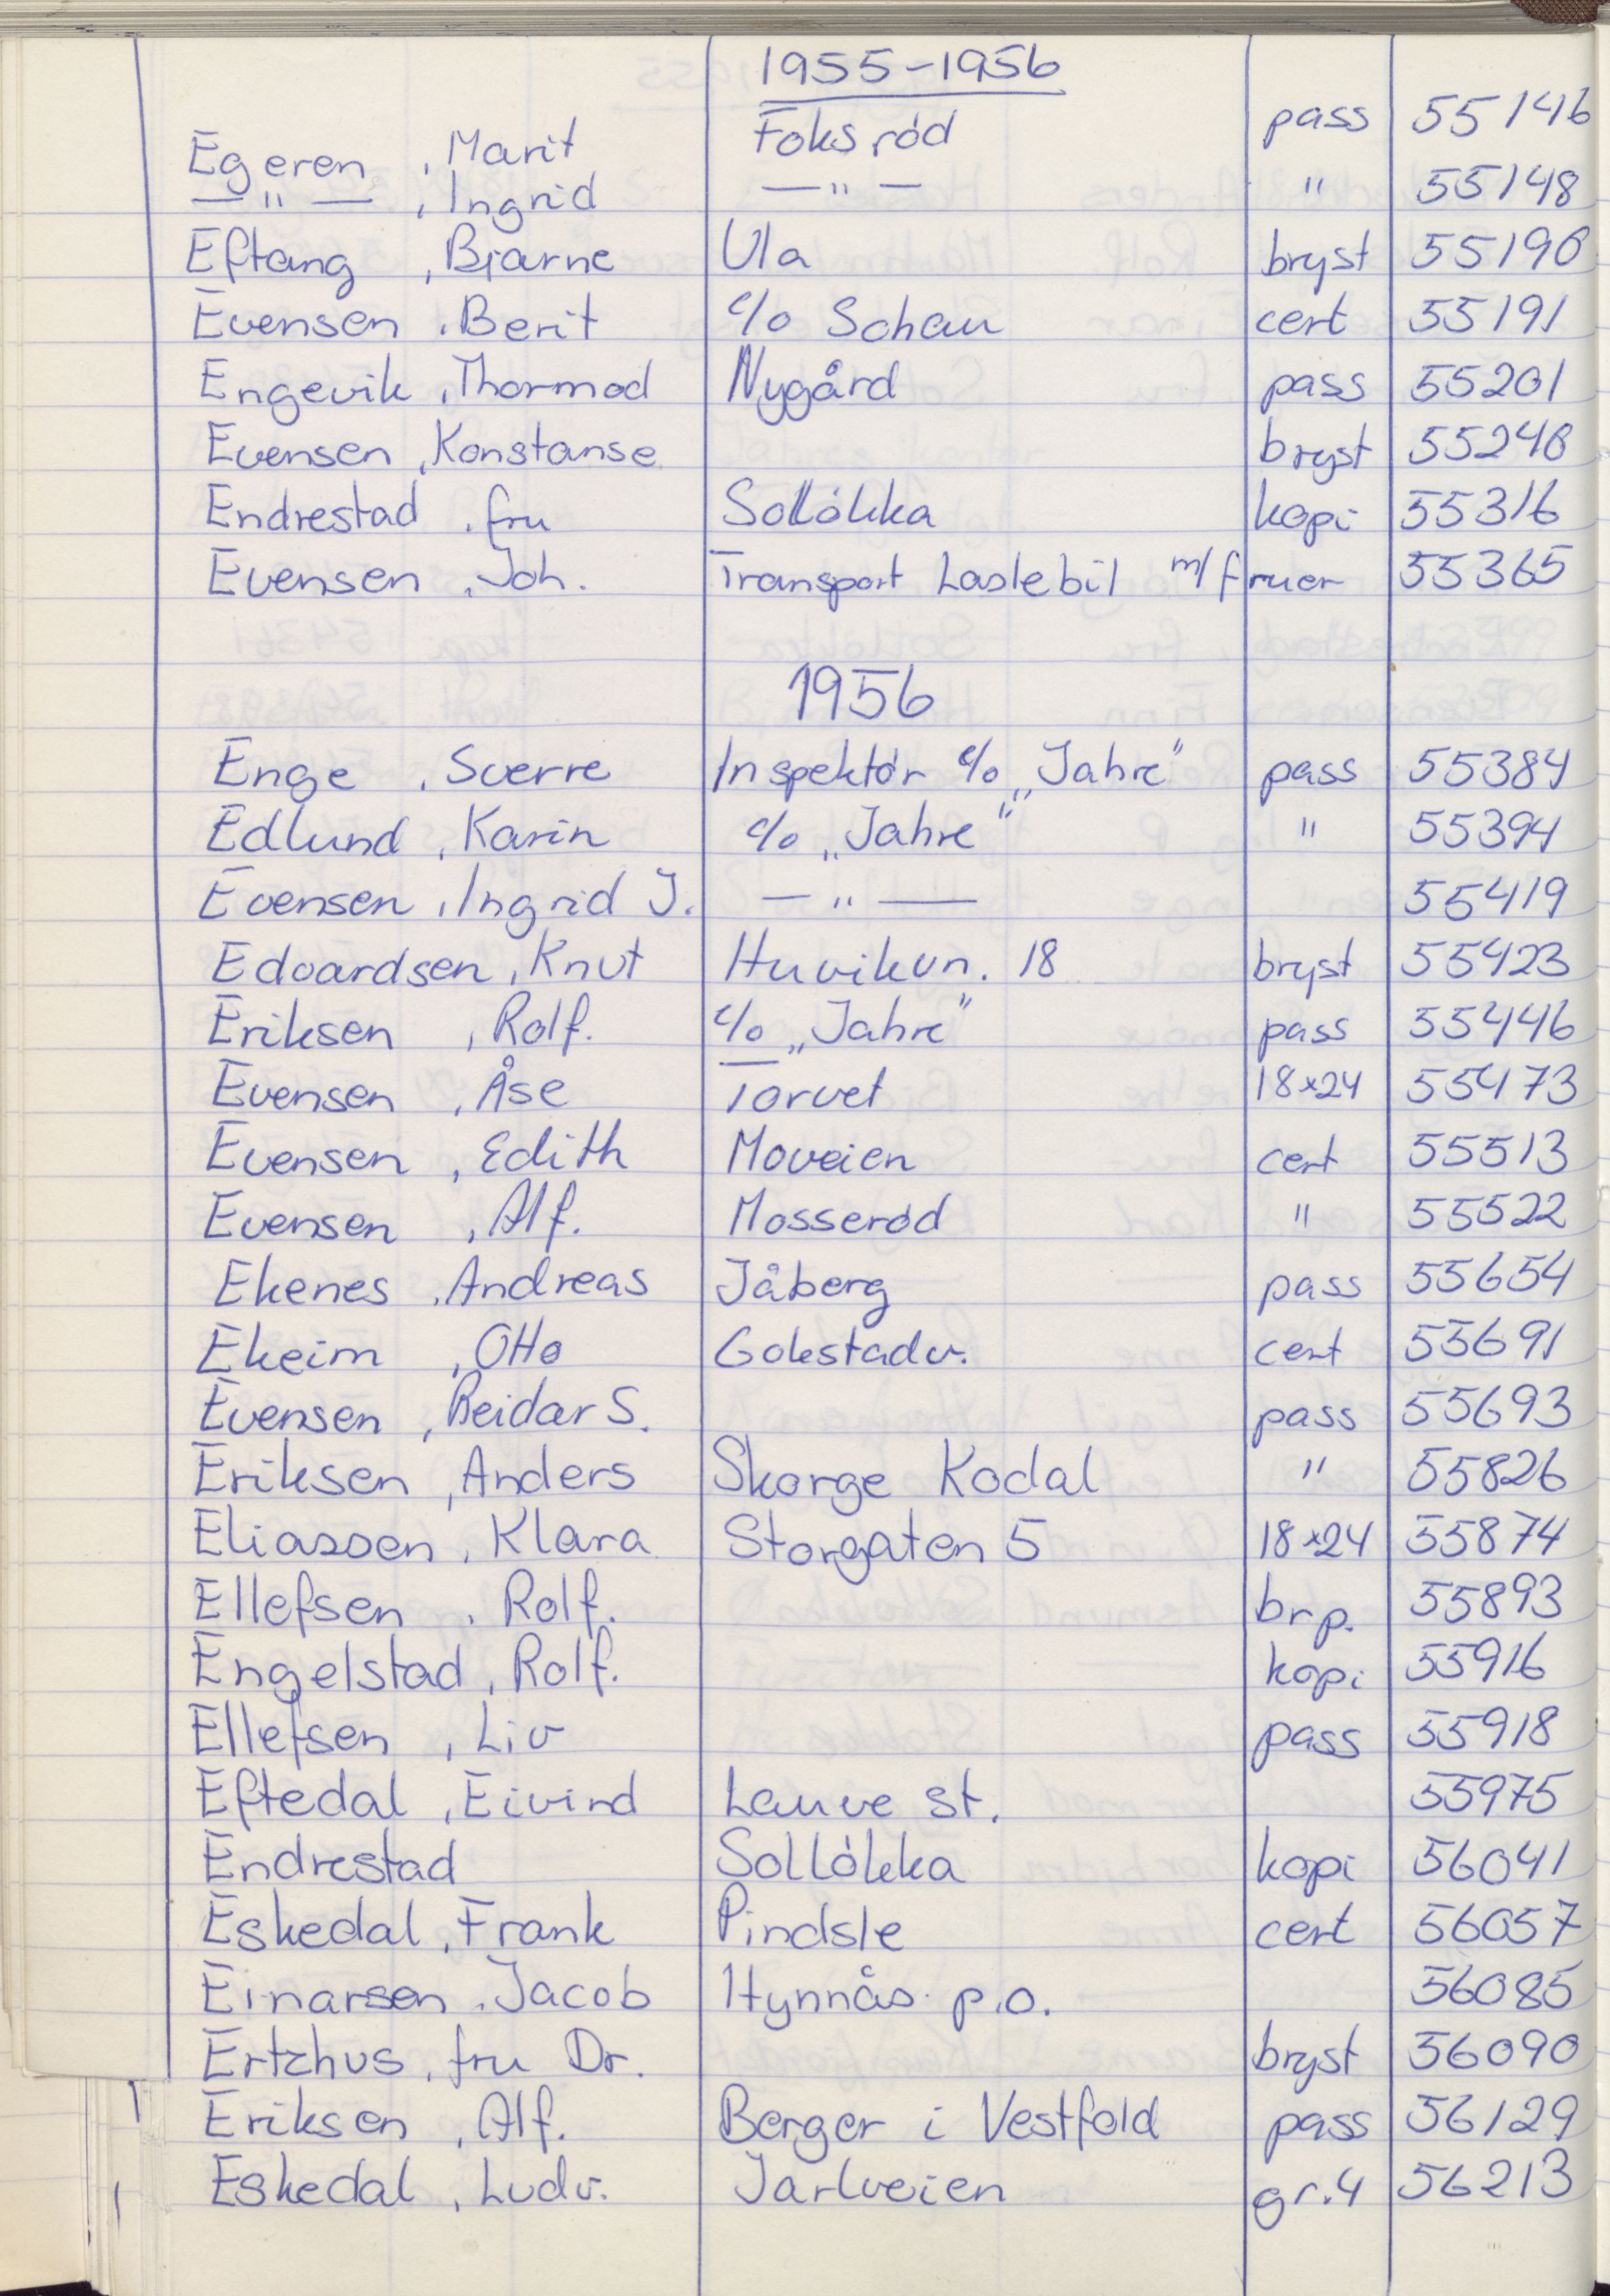 1955-1956
Egeren , Marit Foksród pass 55146
— " — , Ingrid — " — " 55148
Eftang , Bjarne Ula bryst 55190
Evensen , Berit c/o Schau cert 55191
Engevik , Thormod Nygård pass 55201
Evensen , Konstanse bryst 55240
Endrestad , fru Sollókka kopi 55316
Evensen , Joh. Transport Lastebil m/fruer 55365
1956
Enge , Sverre Inspektór c/o „Jahre" pass 55384
Edlund , Karin c/o „Jahre" " 55394
Evensen , Ingrid J. — " — 55419
Edvardsen , Knut Huvikvn. 18 bryst 55423
Eriksen , Rolf. c/o „Jahre" pass 55446
Evensen , Åse Torvet 18x24 55473
Evensen , Edith Moveien cert 55513
Evensen , Alf. Mosseród " 55522
Ekenes , Andreas Jåberg pass 55654
Ekeim , Otto Gokstadv. cert 55691
Evensen , Reidar S. pass 55693
Eriksen , Anders Skorge Kodal " 55826
Eliassen , Klara Storgaten 5 18x24 55874
Ellefsen , Rolf. brp. 55893
Engelstad , Rolf. kopi 55916
Ellefsen , Liv pass 55918
Eftedal , Eivind Lauve st. 55975
Endrestad Sollókka kopi 56041
Eskedal , Frank Pindsle cert 56057
Einarsen , Jacob Hynnås p.o. 56085
Ertzhus , fru Dr. bryst 56090
Eriksen , Alf. Berger i Vestfold pass 56129
Eskedal , Ludv. Jarlveien gr.4 56213